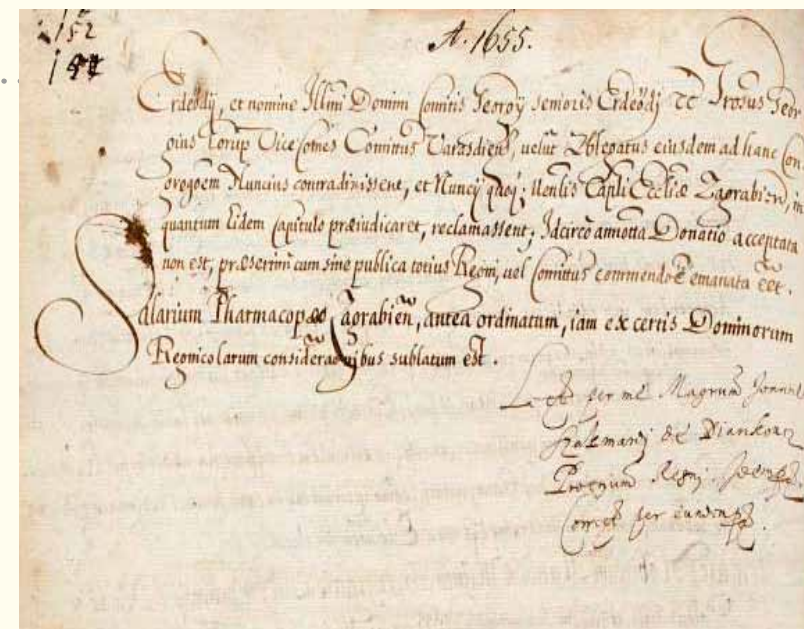 152
A. 1655.
Erdeödij, et nomine Illmi Domini Comitis Georgij senioris Erdeödj etc Grosus Geor
gius Vice Comes Comittus Varasdien, velut Ablegatus eiusdem ad hanc Con
gregoem Nuncius contradixissent, et Nuncij quoq; Venlis Capli Eccliæ Zagrabien, in
quantum Eidem Capitulo præiudicaret, reclamassent; Idcircò annotta Donatio acceptata
non est, præserim cum sine publica totius Regni, vel Comittus emanata eet.
Salarium Pharmacopæo Zagrabien, antea ordinatum, iam ex certis Dominorum
Regnicolarum consideraonibus sublatum est.
Lect per me Magrum Joann
Regni
per eundem